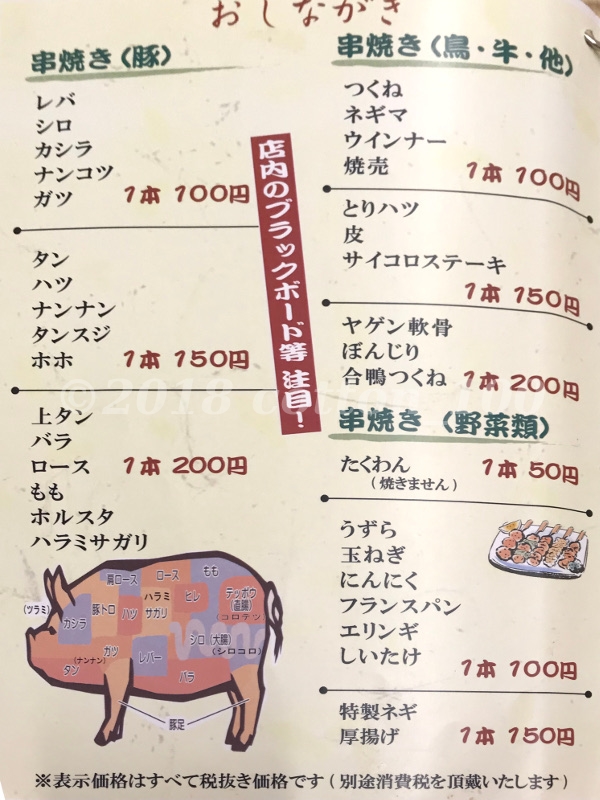 おしながき
串焼き(豚)
レバ
シロ
カシラ
ナンコツ
ガツ 1本 100円
タン
ハツ
ナンナン
タンスジ
ホホ 1本 150円
上タン
バラ
ロース 1本 200円
もも
ホルスタ
ハラミサガリ
店内のブラックボード等 注目!
串焼き(鳥・牛・他)
つくね
ネギマ
ウインナー
焼売 1本 100円
とりハツ
皮
サイコロステーキ
1本 150円
ヤゲン軟骨
ぼんじり
合鴨つくね 1本 200円
串焼き (野菜類)
たくわん 1本 50円
(焼きません)
うずら
玉ねぎ
にんにく
フランスパン
エリンギ
しいたけ 1本 100円
特製ネギ
厚揚げ 1本 150円
肩ロース
ロース
もも
(ツラミ)
カシラ
豚トロ
ハツ
ハラミ
サガリ
ヒレ
テッポウ
(直腸)
(コロテツ)
ガツ
(ナンナン)
タン
レバー
シロ(大腸)
(シロコロ)
バラ
豚足
※表示価格はすべて税抜き価格です(別途消費税を頂戴いたします)